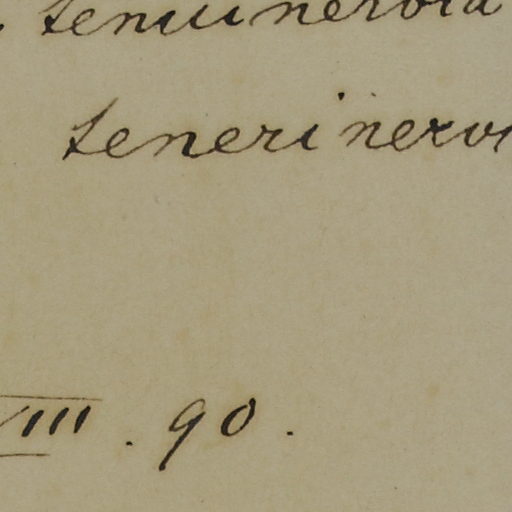 tenuinervia
tenerinervi
VIII. 90.